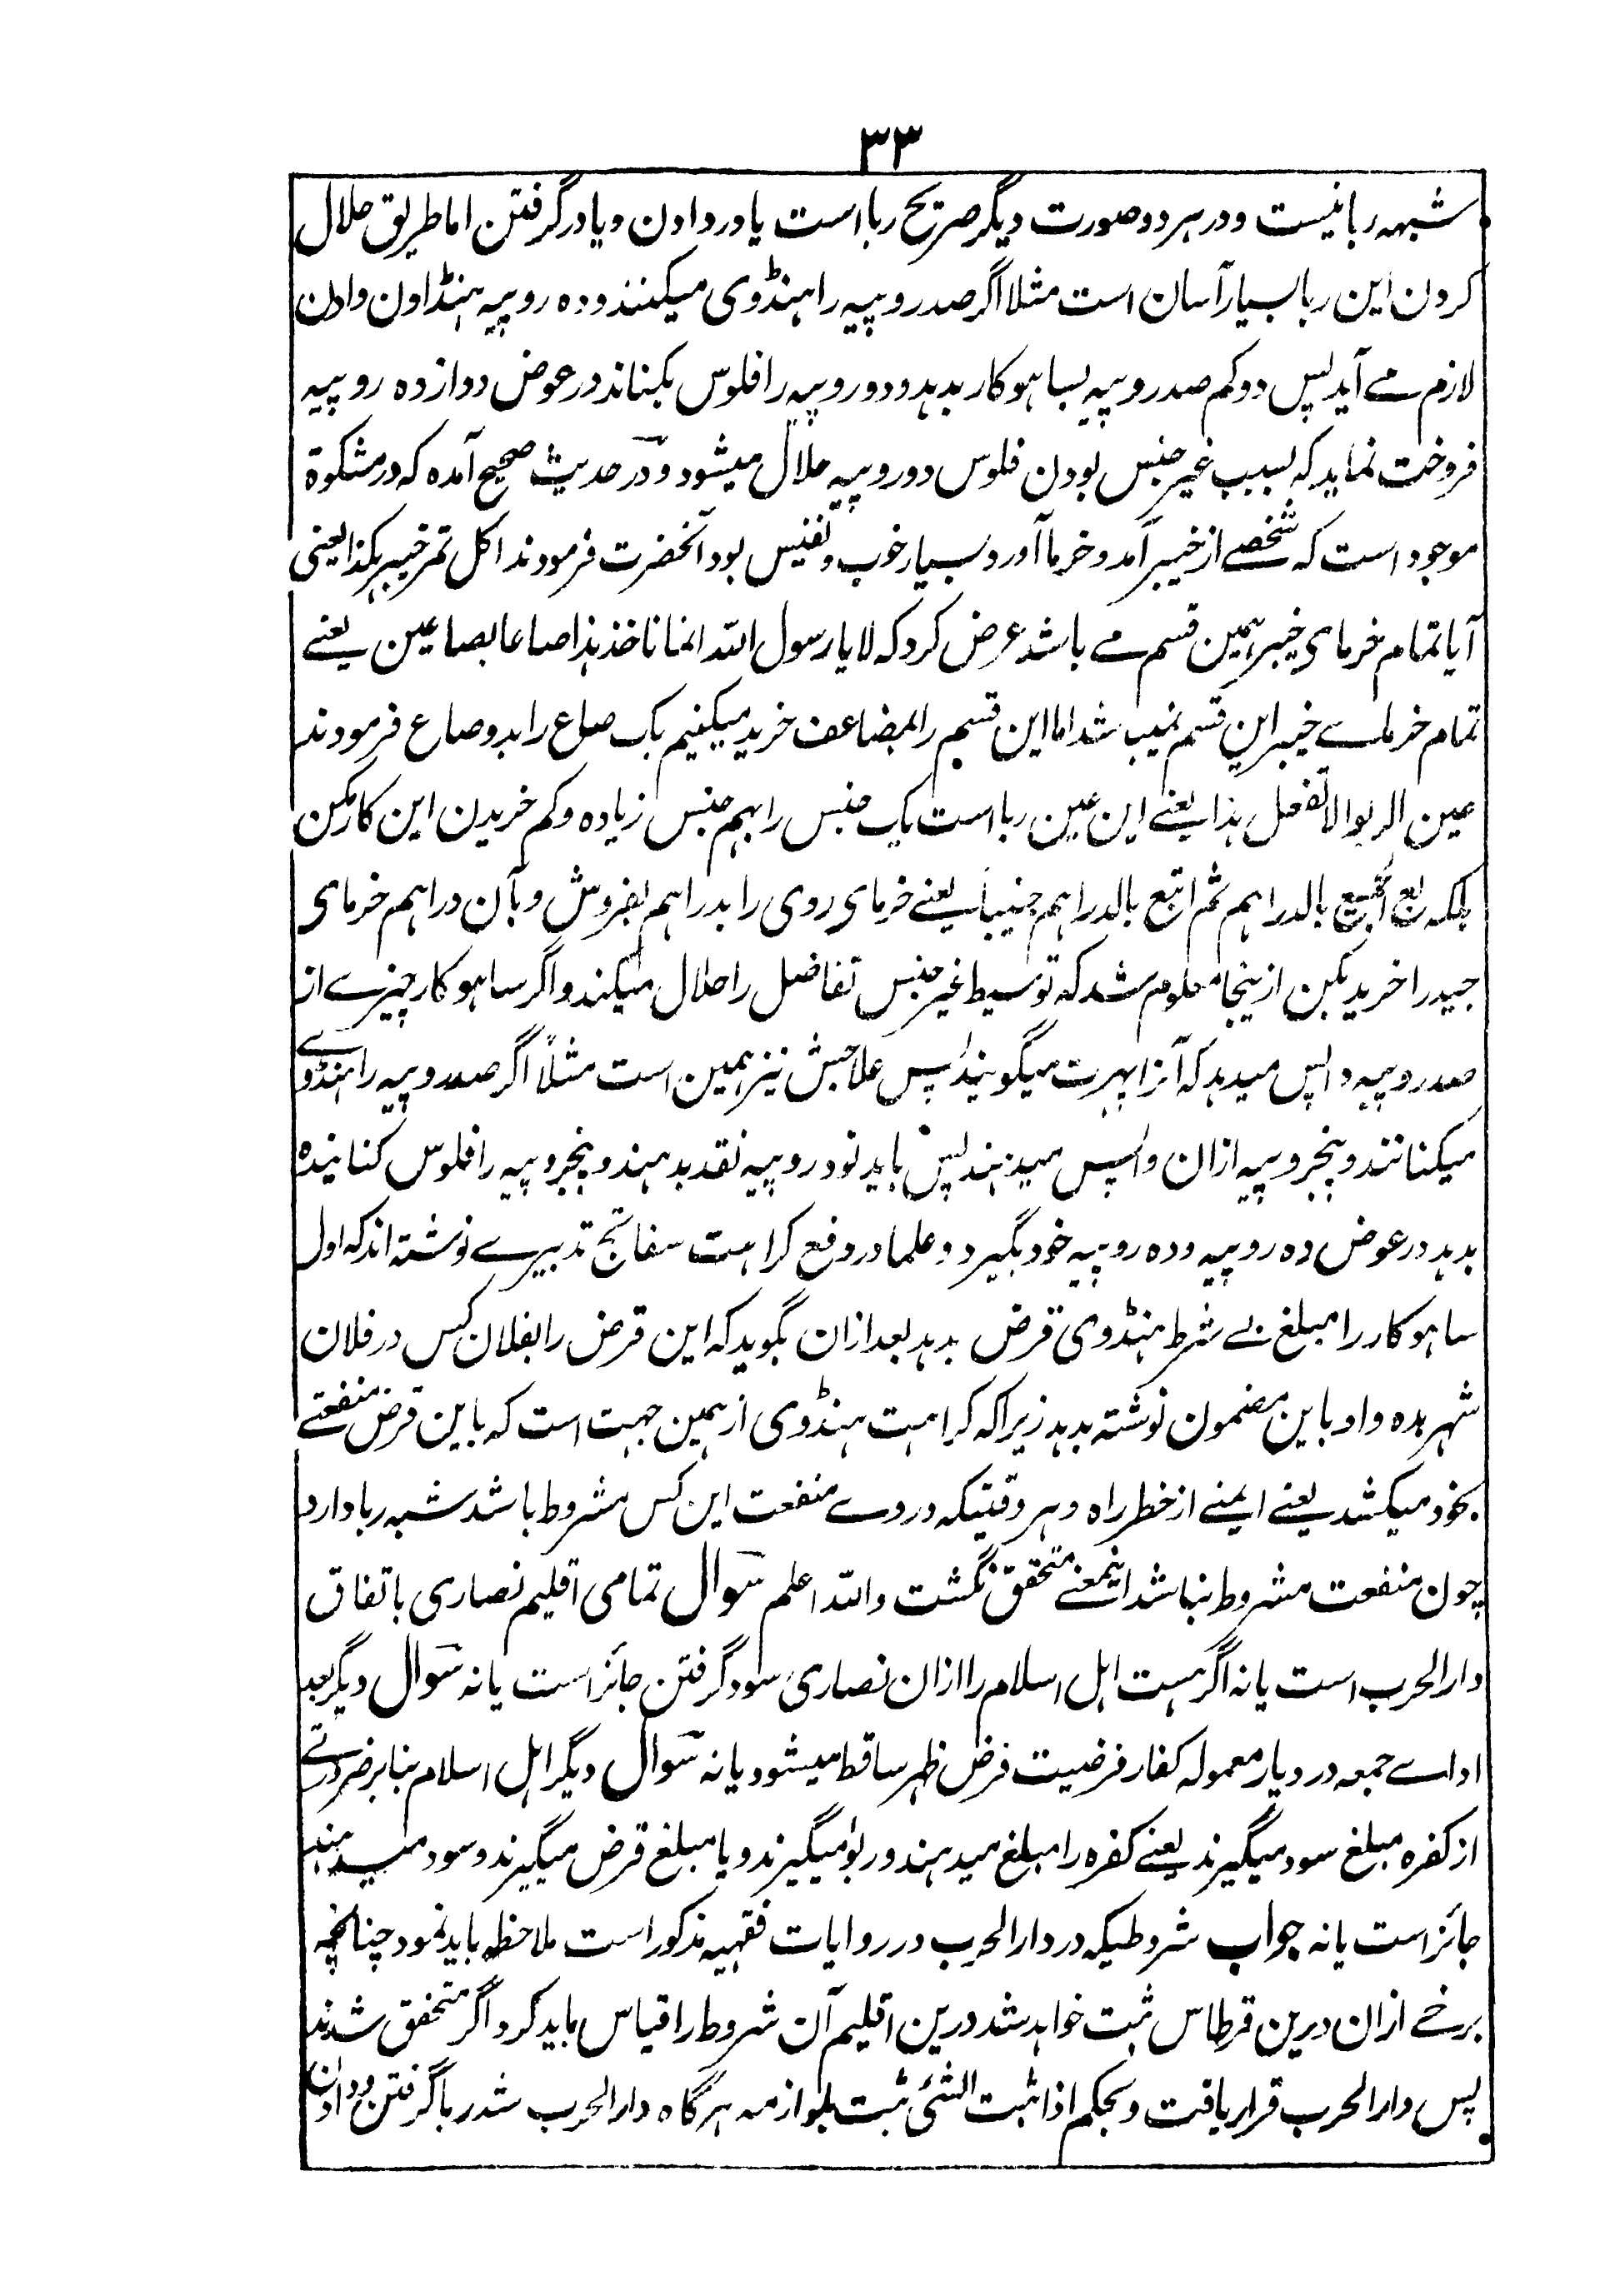 ۳۳
شبهہ ربا نیست و در هر دو صورت دیگر صریح ربا است یا در دادن و یا در گرفتن اما طریق حلال
کردن این ربا بسیار آسان است مثلا اگر صد روپیہ را ہنڈوی میکنند و ده روپیہ ہنڈاون دادن
لازم مے آید پس دو کم صد روپیہ بساہوکار بدہد و دو روپیہ را فلوس بکناند در عوض دوازده روپیہ
فروخت نماید کہ بسبب غیر جنس بودن فلوس دو روپیہ حلال میشود و در حدیث صحیح آمده کہ در مشکوة
موجود است کہ شخصے از خیبر آمد و خرما آورد بسیار خوب و نفیس بود آنحضرت فرمودند اکل تمر خیبر ہکذا یعنی
آیا تمام خرمای خیبر ہمین قسم مے باشد عرض کرد کہ لا یا رسول اللہ انما ناخذ ہذا صاعا بصاعین یعنے
تمام خرماے خیبر این قسم نمیباشد اما این قسم را بمضاعف خرید میکنیم یک صاع را بدو صاع فرمودند
عین الربوا لا تفعل ہذا یعنے این عین ربا است یک جنس را بہم جنس زیاده و کم خریدن این کار مکن
بلکہ بع الجمیع بالدراہم ثم ابتع بالدراہم جنیبا یعنے خرمای ردی را بدراہم بفروش و بآن دراہم خرمای
جید را خرید بکن از ینجا معلوم شد کہ توسیط غیر جنس تفاضل را حلال میکند و اگر ساہوکار چیزے از
صد روپیہ واپس میدہد کہ آنرا بہرت میگویند پس علاجش نیز ہمین است مثلاً اگر صد روپیہ را ہنڈوے
میکنانند و پنجروپیہ ازان واپس میدہند پس باید نود روپیہ نقد بدہند و پنجروپیہ را فلوس کنانیده
بدہد در عوض ده روپیہ و ده روپیہ خود بگیرد و علما در رفع کراہت سفاتج تدبیرے نوشتہ اند کہ اول
ساہوکار را مبلغ بے شرط ہنڈوی قرض بدہد بعد ازان بگوید کہ این قرض را بفلان کس در فلان
شہر بده و او باین مضمون نوشتہ بدہد زیرا کہ کراہت ہنڈوی از ہمین جہت است کہ باین قرض منفعتے
بخود میکشد یعنے ایمنے از خطر راه و ہر وقتیکہ در وے منفعت این کس مشروط باشد شبہ ربا دارد
چون منفعت مشروط نباشد اینمعنے متحقق نگشت واللہ اعلم سوال تمامی اقلیم نصاری باتفاق
دارالحرب است یا نہ اگر ہست اہل اسلام را ازان نصاری سود گرفتن جائز است یا نہ سوال دیگر بعد
اداے جمعہ در دیار معمولہ کفار فرضیت فرض ظہر ساقط میشود یا نہ سوال دیگر اہل اسلام بنا بر ضرورتے
از کفره مبلغ سود میگیرند یعنے کفره را مبلغ میدہند و ربوا میگیرند و یا مبلغ قرض میگیرند و سود میدہند
جائز است یا نہ جواب شروطیکہ در دارالحرب در روایات فقہیہ مذکور است ملاحظہ باید نمود چنانچہ
برخے ازان درین قرطاس ثبت خواہد شد درین اقلیم آن شروط را قیاس باید کرد اگر متحقق شدند
پس دارالحرب قرار یافت و بحکم اذا ثبت الشئ ثبت بلوازمہ ہرگاه دارالحرب شد ربا گرفتن و دادن